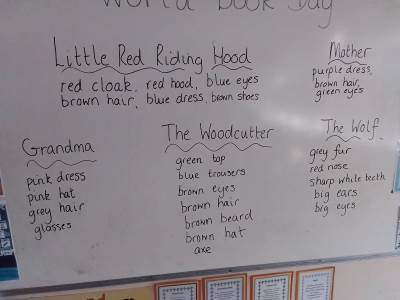 World Book Day
Little Red Riding Hood
red cloak, red hood, blue eyes
brown hair, blue dress, brown shoes
Mother
purple dress,
brown hair,
green eyes
Grandma
pink dress
pink hat
grey hair
glasses
The Woodcutter
green top
blue trousers
brown eyes
brown hair
brown beard
brown hat
axe
The Wolf
grey fur
red nose
sharp white teeth
big ears
big eyes